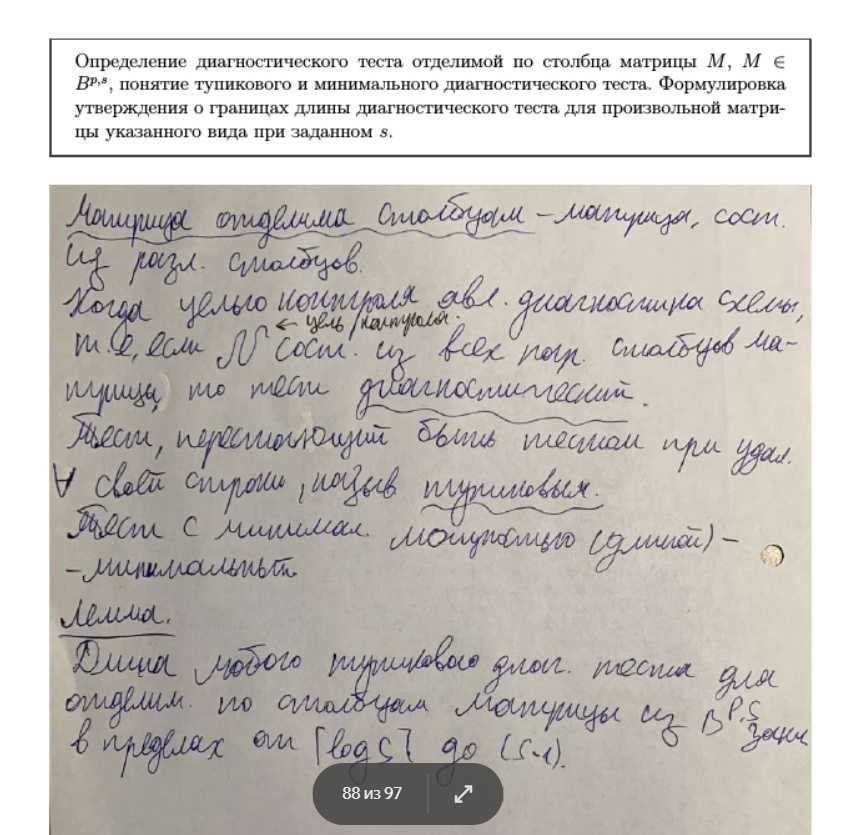 Определение диагностического теста отделимой по столбца матрицы M, M ∈
Bᵖ·ˢ, понятие тупикового и минимального диагностического теста. Формулировка
утверждения о границах длины диагностического теста для произвольной матри-
цы указанного вида при заданном s.
Матрица отделима столбцам – матрица, сост.
из разл. столбцов.
Когда целью контроля явл. диагностика схемы,
← цель контроля.
т.е, если N сост. из всех пар. столбцов ма-
трицы, то тест диагностический.
Тест, перестающий быть тестом при удал.
∀ своей строки, назыв тупиковым.
Тест с минимал. мощностью (длиной) –
– минимальный.
Лемма.
Длина любого тупикового диаг. теста для
отделим. по столбцам матрицы из B^P,S
в пределах от ⌈log S⌉ до (S-1).
88 из 97